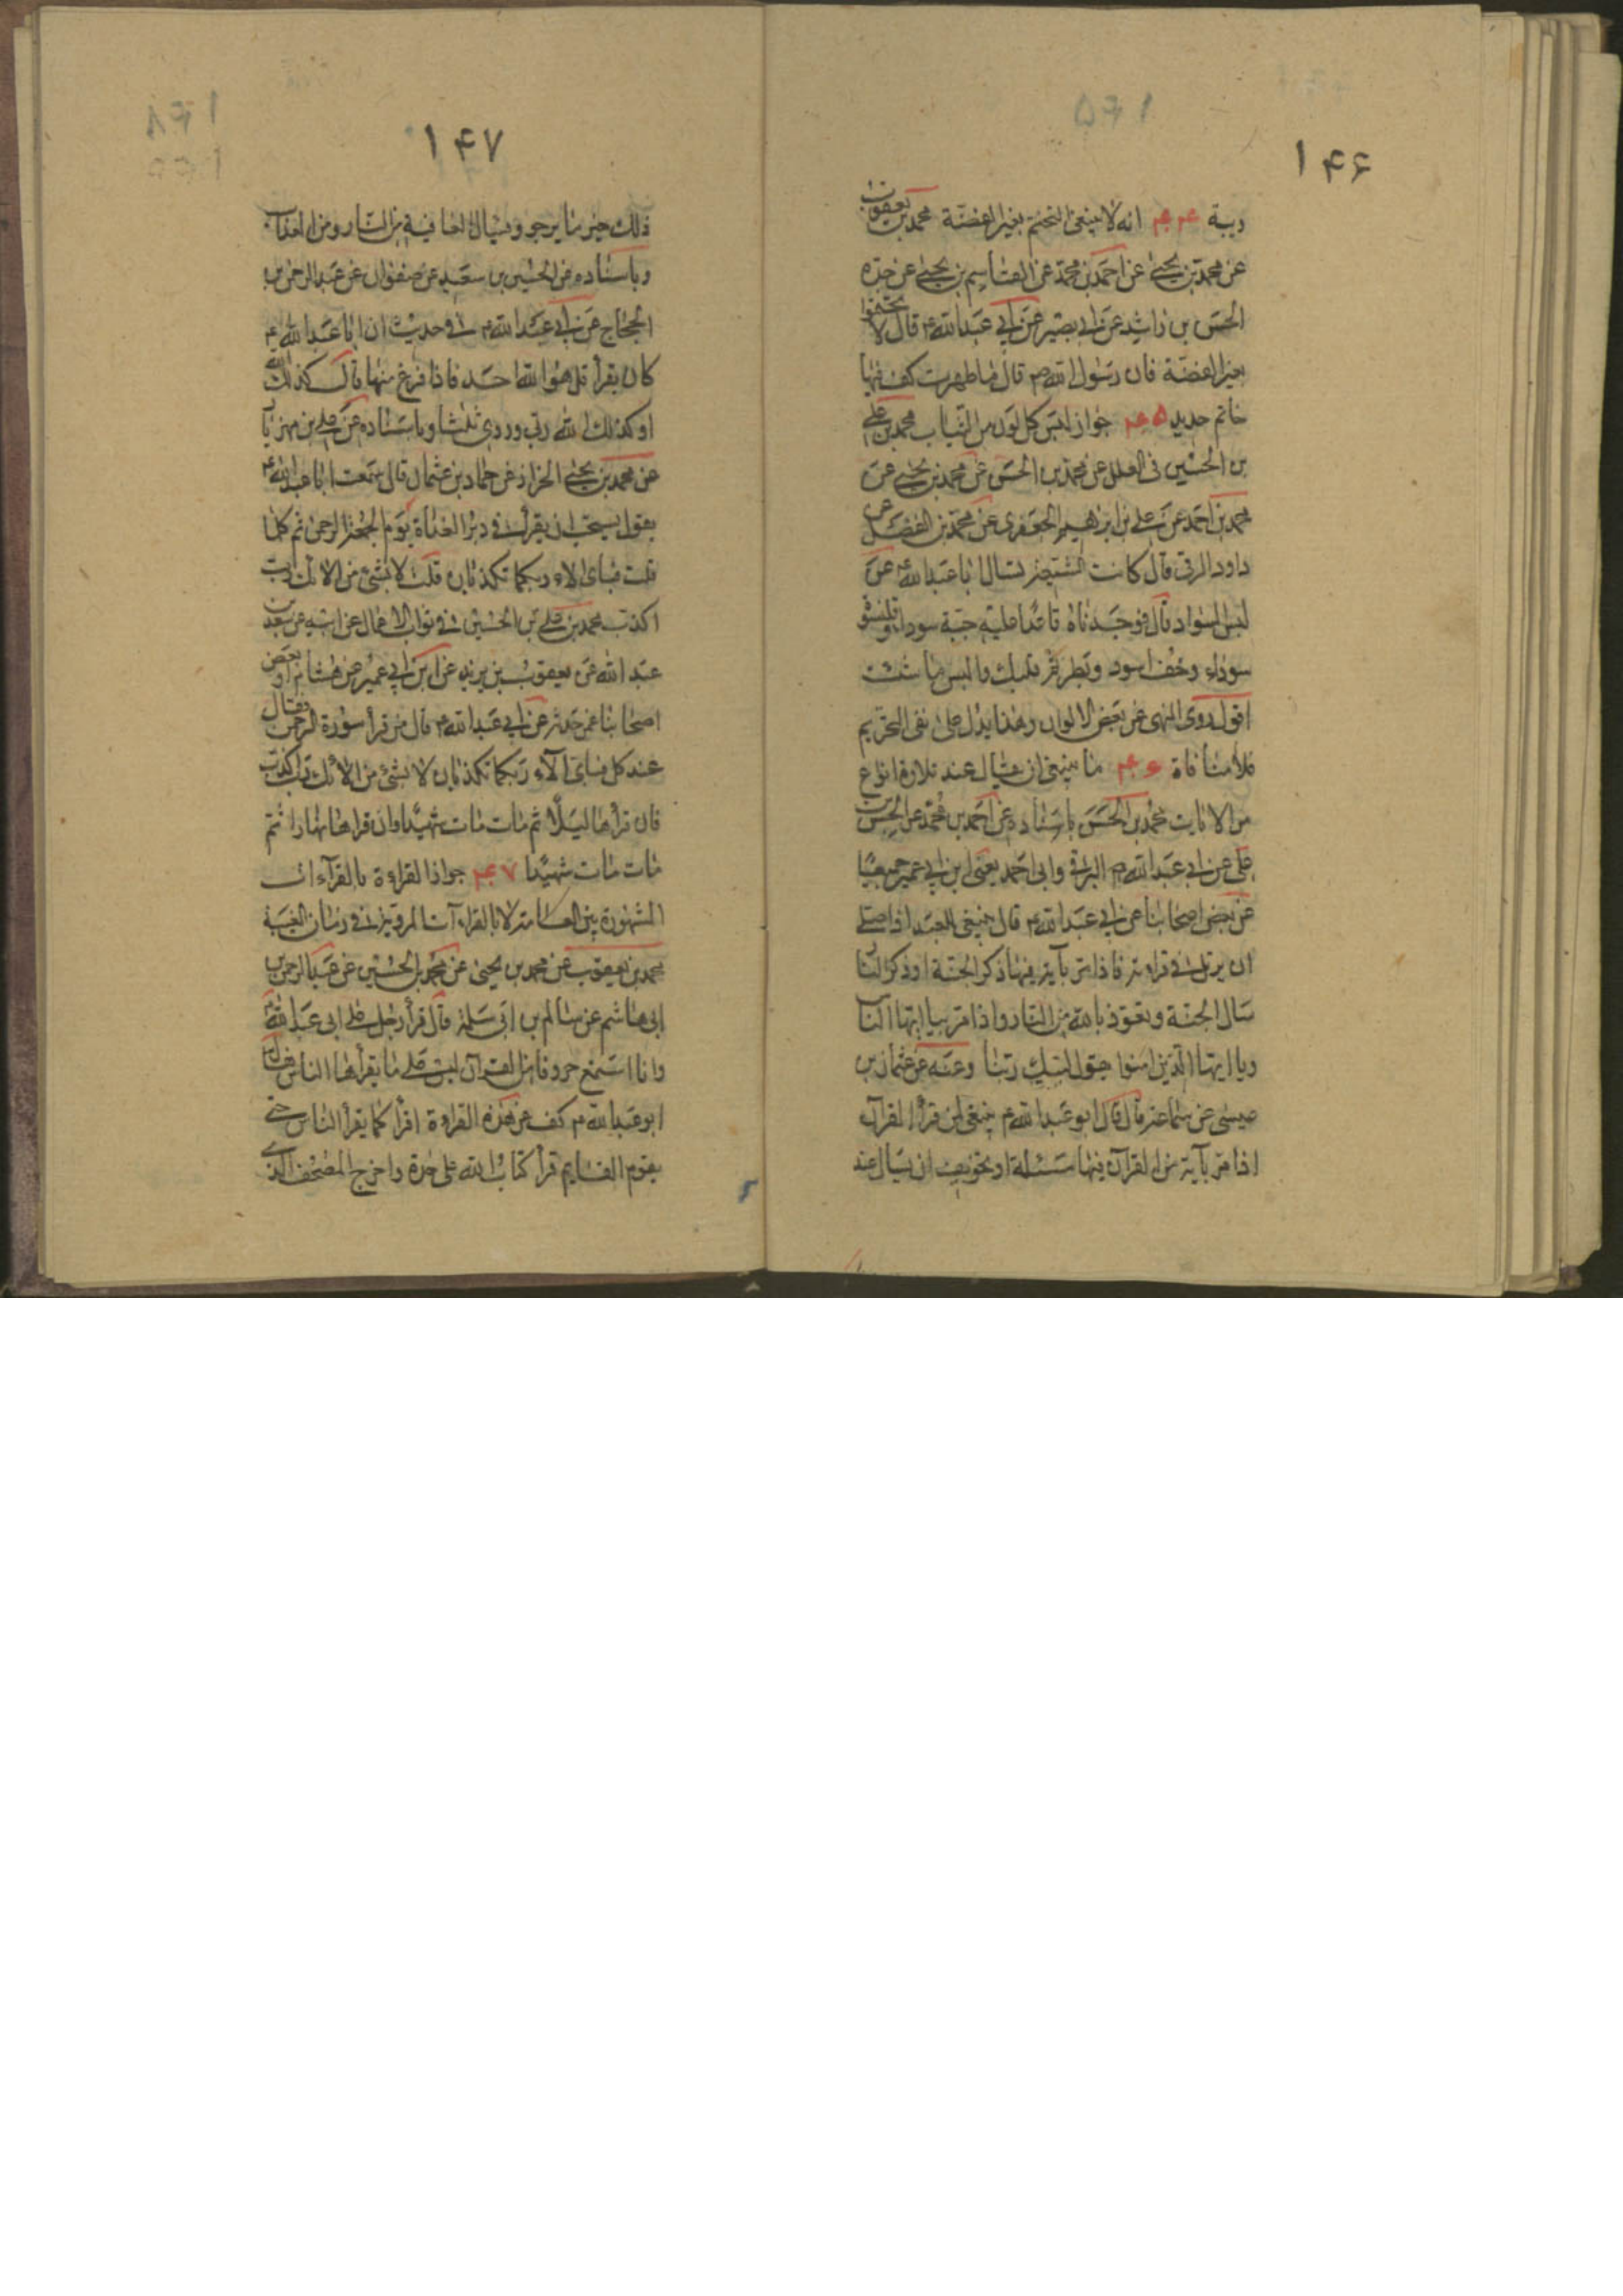 ۱۴۶
ريبة ۴۴ انه لا ينبغى التختم بغير الفضّة محمد بن يعقوب
عن محمد بن يحيى عن احمد بن محمد عن القاسم بن يحيى عن جدّه
الحسن بن راشد عن ابى بصير عن ابى عبد الله ع قال لا تختموا
بغير الفضّة فان رسول الله ص قال ما طهرت كف فيها
خاتم حديد ۴۵ جواز لبس كل لون من الثياب محمد بن على
بن الحسين فى العلل عن محمد بن الحسن عن محمد بن يحيى عن
محمد بن احمد عن على بن ابراهيم الجعفرى عن محمد بن الفضل عن
داود الرقى قال كانت الشيعة تسال ابا عبد الله ع عن
لبس السواد قال فوجدناه قاعدا عليه جبة سوداء وقلنسوة
سوداء وخف اسود وبطن قلبك والبس ما شئت
اقول روى النهى عن بعض الالوان وهذا يدل على نفى التحريم
فلا منافاة ۴۶ ما ينبغى ان يسال عند تلاوة انواع
من الايات محمد بن الحسن باسناده عن احمد بن محمد عن الحسن بن
على عن ابى عبد الله البرقى وابى احمد يعنى ابن ابى عمير جميعا
عن بعض اصحابنا عن ابى عبد الله ع قال ينبغى للعبد اذا صلى
ان يرتل فى قراءته فاذا مر بآية فيها ذكر الجنة او ذكر النا
سال الجنة وتعوذ بالله من النار واذا مر بيا ايها النا
ويا ايها الذين امنوا يقول لبيك ربنا وعنه عن عثمان بن
عيسى عن سماعة قال قال ابو عبد الله ع ينبغى لمن قرأ القرآن
اذا مر بآية من القرآن فيها مسئلة او تخويف ان يسال عند
۱۴۷
ذلك خير ما يرجو ويسال العافية من النار ومن العذاب
وباسناده عن الحسين بن سعيد عن صفوان عن عبد الرحمن بن
الحجاج عن ابى عبد الله ع فى حديث ان ابا عبد الله ع
كان يقرأ قل هو الله احد فاذا فرغ منها قال كذلك الله
او كذلك الله ربى وروى ثلثا وباسناده عن على بن مهزيا
عن محمد بن يحيى الخزاز عن حماد بن عثمان قال سمعت ابا عبد الله ع
يقول يستحب ان يقرأ فى دبر الغداة يوم الجمعة الرحمن ثم كلما
قلت فباى الاء ربكما تكذبان قلت لا بشئ من الائك رب
اكذب محمد بن على بن الحسين فى ثواب الاعمال عن ابيه عن سعد بن
عبد الله عن يعقوب بن يزيد عن ابن ابى عمير عن هشام او بعض
اصحابنا عمن حدثه عن ابى عبد الله ع قال من قرأ سورة الرحمن فقال
عند كل فباى آلاء ربكما تكذبان لا بشئ من الائك رب اكذب
فان قرأها ليلا ثم مات مات شهيدا وان قراها نهارا ثم
مات مات شهيدا ۴۷ جواز القراءة بالقراءات
المشهورة بين العامة لا بالقراءات المروية فى زمان الغيبة
محمد بن يعقوب عن محمد بن يحيى عن محمد بن الحسين عن عبد الرحمن بن
ابى هاشم عن سالم بن ابى سلمة قال قرأ رجل على ابى عبد الله ع
وانا استمع حروفا من القرآن ليس على ما يقرأها الناس فقال
ابو عبد الله ع كف عن هذه القراءة اقرأ كما يقرأ الناس حتى
يقوم القايم قرأ كتاب الله على حدة واخرج المصحف الذى